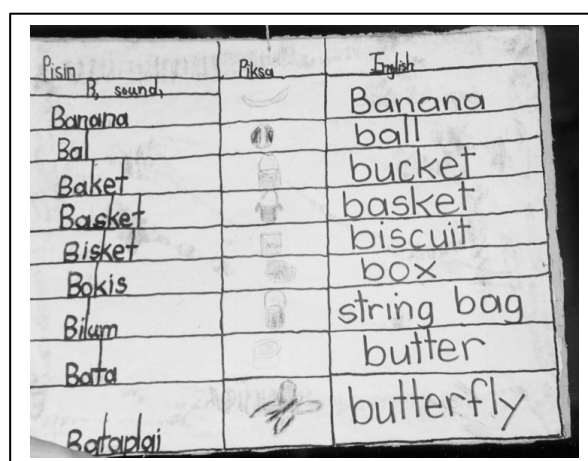 Pisin Piksa English
B, sound,
Banana Banana
Bal ball
Baket bucket
Basket basket
Bisket biscuit
Bokis box
Bilum string bag
Bata butter
Bataplai butterfly